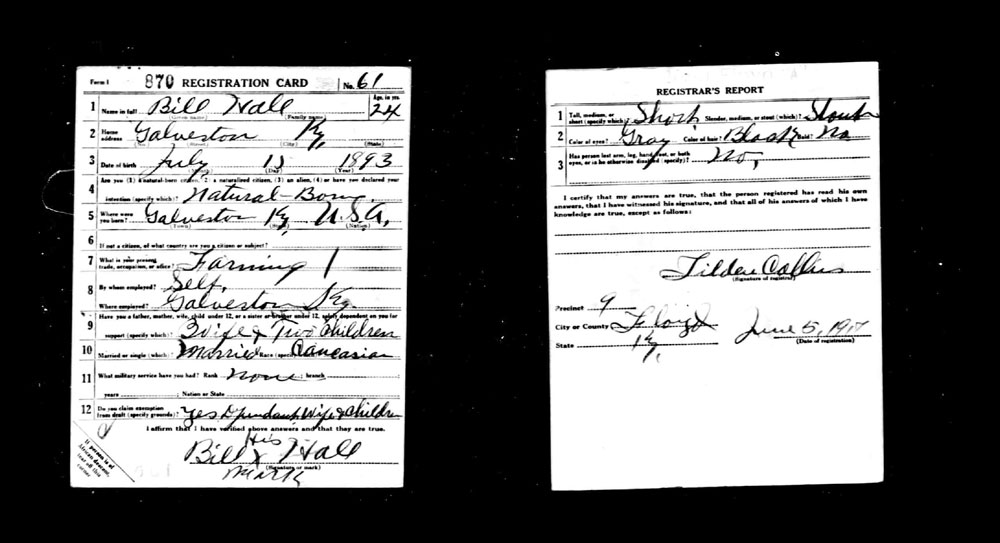 Form 1 870 REGISTRATION CARD No. 61
1 Name in full Bill Hall Age, in yrs. 24
(Given name) (Family name)
2 Home address Galveston Ky,
(No.) (Street) (City) (State)
3 Date of birth July 15 1893
(Month) (Day) (Year)
Are you (1) a natural-born citizen, (2) a naturalized citizen, (3) an alien, (4) or have you declared your
4 intention (specify which)? Natural-Born
5 Where were you born? Galveston Ky, U.S.A,
(Town) (State) (Nation)
6 If not a citizen, of what country are you a citizen or subject?
7 What is your present trade, occupation, or office? Farming
8 By whom employed? Self,
Where employed? Galveston Ky.
9 Have you a father, mother, wife, child under 12, or a sister or brother under 12, solely dependent on you for
support (specify which)? Wife & Two Children
10 Married or single (which)? Married Race (specify which)? Caucasian
11 What military service have you had? Rank None ; branch ;
years ; Nation or State
12 Do you claim exemption from draft (specify grounds)? Yes Dpendant, Wife & Children
I affirm that I have verified above answers and that they are true.
His
Bill x Hall
(Signature or mark)
Mark
If person is of African descent, tear off this corner
REGISTRAR'S REPORT
1 Tall, medium, or short (specify which)? Short Slender, medium, or stout (which)? Stout
2 Color of eyes? Gray Color of hair? Black Bald? No
3 Has person lost arm, leg, hand, foot, or both eyes, or is he otherwise disabled (specify)? No,
I certify that my answers are true, that the person registered has read his own
answers, that I have witnessed his signature, and that all of his answers of which I have
knowledge are true, except as follows:
Tilden Collins
(Signature of registrar)
Precinct 9
City or County Floyd June 5, 1917
State Ky, (Date of registration)